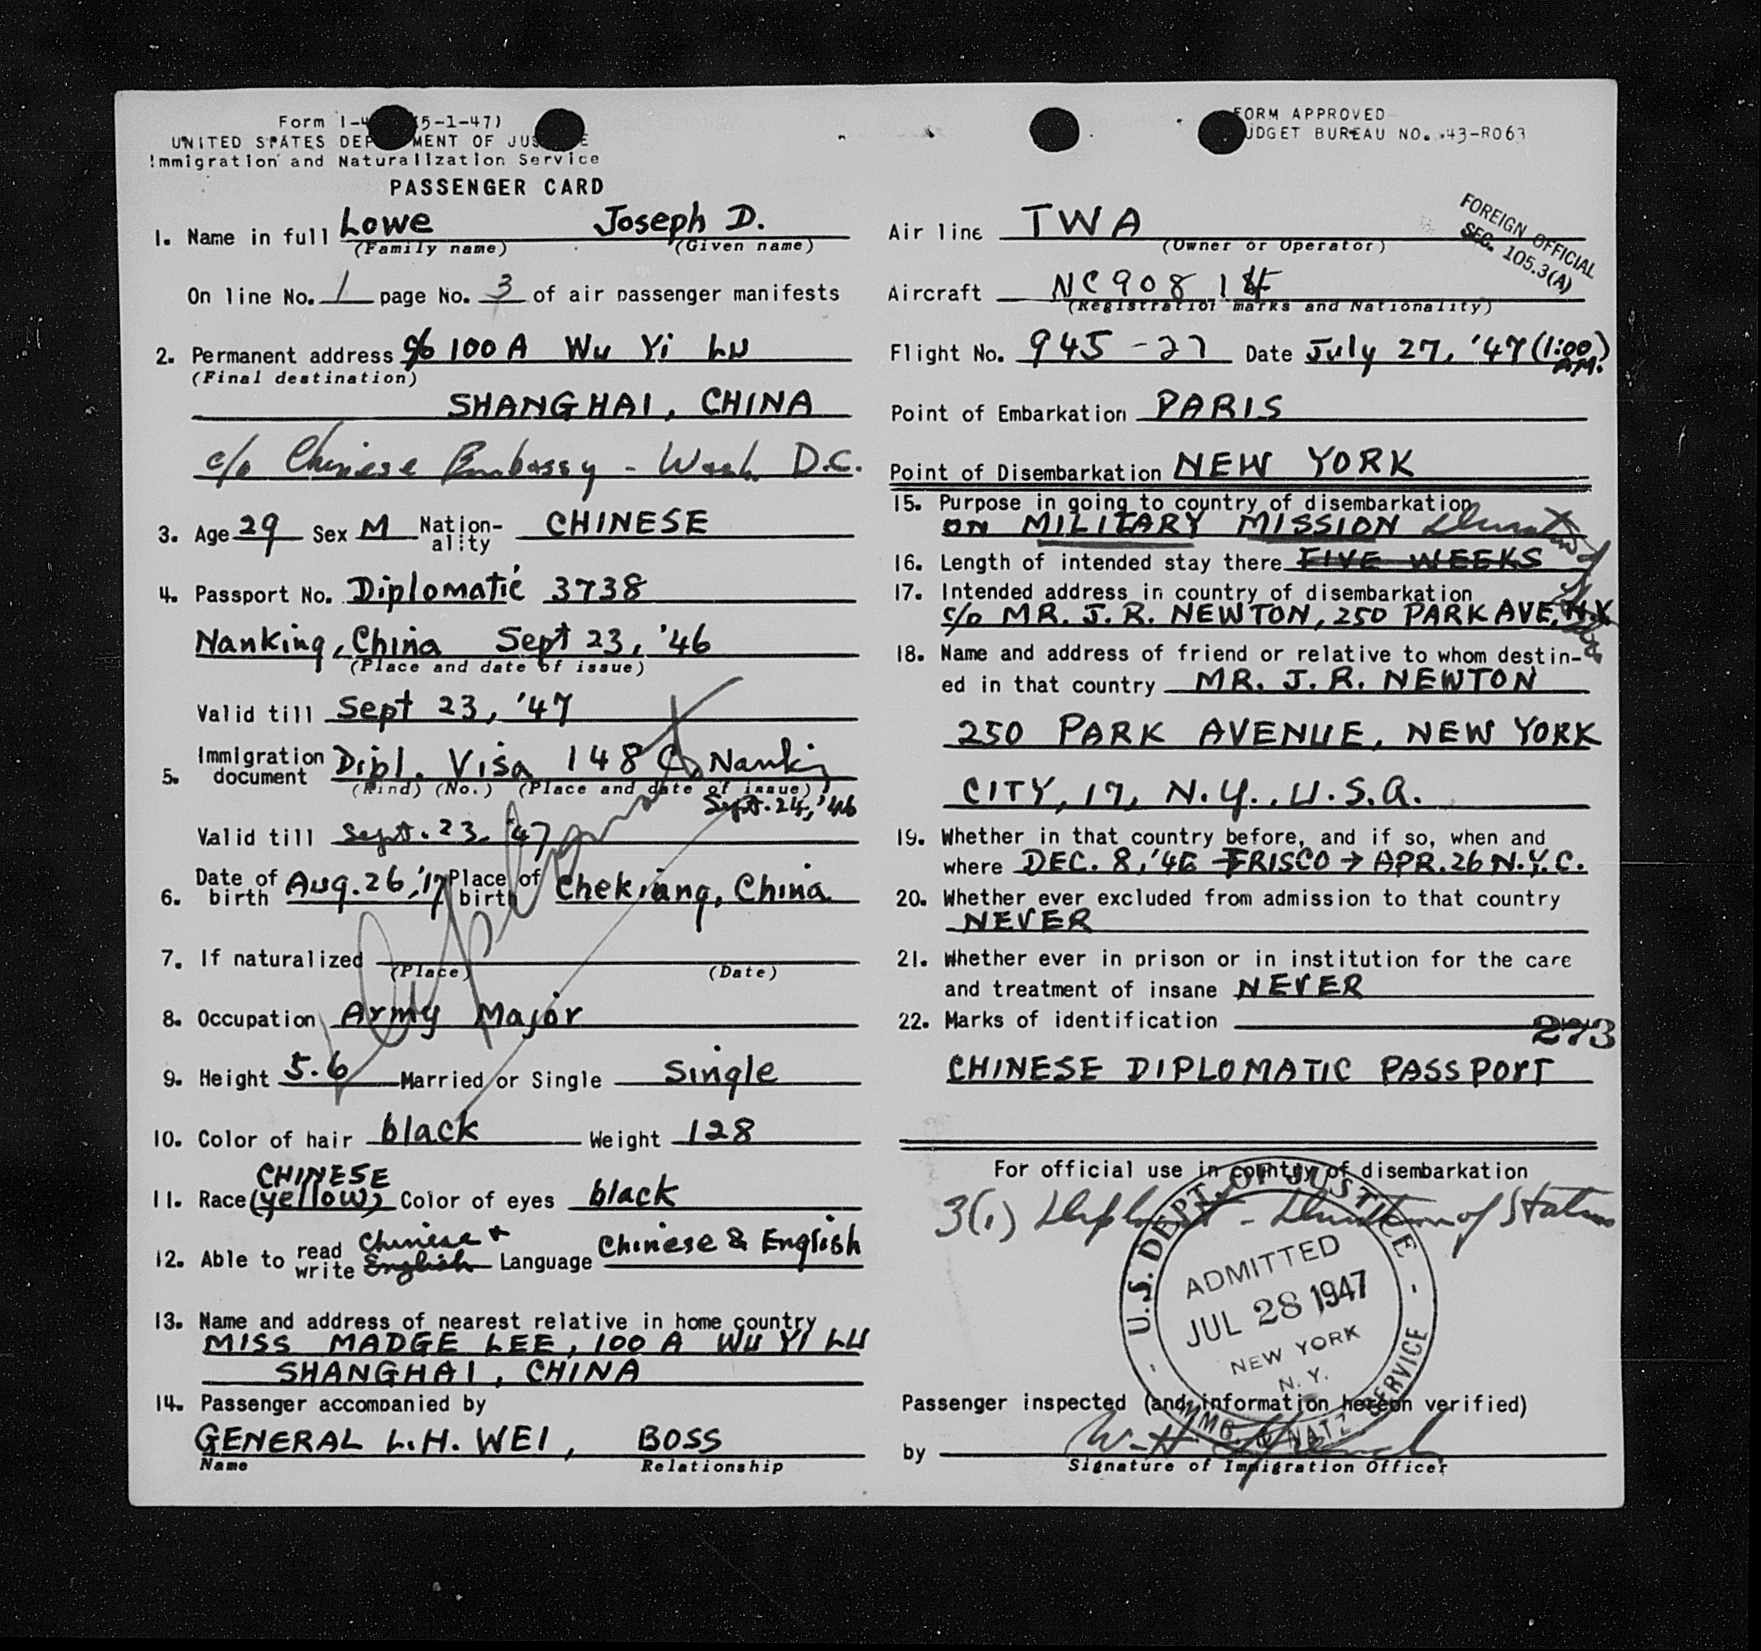 Form I-4 (5-1-47)
UNITED STATES DEP MENT OF JUS E
Immigration and Naturalization Service
PASSENGER CARD
1. Name in full Lowe Joseph D.
(Family name) (Given name)
On line No. 1 page No. 3 of air passenger manifests
2. Permanent address c/o 100 A Wu Yi Lu
(Final destination)
SHANGHAI, CHINA
c/o Chinese Embassy - Wash. D.C.
3. Age 29 Sex M Nation-ality CHINESE
4. Passport No. Diplomatic 3738
Nanking, China Sept 23, '46
(Place and date of issue)
Valid till Sept 23, '47
5. Immigration document Dipl. Visa 148 Nankin
(Kind) (No.) (Place and date of issue)
Sept. 24, '46
Valid till Sept. 23, '47
6. Date of birth Aug. 26, '17 Place of birth Chekiang, China
7. If naturalized
(Place) (Date)
8. Occupation Army Major
9. Height 5.6 Married or Single Single
10. Color of hair black Weight 128
CHINESE
11. Race (yellow) Color of eyes black
12. Able to read Chinese + write English Language Chinese & English
13. Name and address of nearest relative in home country
MISS MADGE LEE, 100 A WU YI LU
SHANGHAI, CHINA
14. Passenger accompanied by
GENERAL L.H. WEI, BOSS
Name Relationship
FORM APPROVED
UDGET BUREAU NO. 43-R063
FOREIGN OFFICIAL
SEC. 105.3(A)
Air line TWA
(Owner or Operator)
Aircraft NC 908 1
(Registration marks and Nationality)
Flight No. 945-27 Date July 27, '47 (1:00 A.M.)
Point of Embarkation PARIS
Point of Disembarkation NEW YORK
15. Purpose in going to country of disembarkation
ON MILITARY MISSION Duration of Status
16. Length of intended stay there FIVE WEEKS
17. Intended address in country of disembarkation
c/o MR. J. R. NEWTON, 250 PARK AVE, N.Y.
18. Name and address of friend or relative to whom destin-
ed in that country MR. J. R. NEWTON
250 PARK AVENUE, NEW YORK
CITY, 17, N.Y., U.S.A.
19. Whether in that country before, and if so, when and
where DEC. 8, '46 FRISCO → APR. 26 N.Y.C.
20. Whether ever excluded from admission to that country
NEVER
21. Whether ever in prison or in institution for the care
and treatment of insane NEVER
22. Marks of identification
273
CHINESE DIPLOMATIC PASSPORT
For official use in country of disembarkation
3(1) Diplomat - Duration of Status
U.S. DEPT. OF JUSTICE
ADMITTED
JUL 28 1947
NEW YORK
N. Y.
IMMG. & NATZ. SERVICE
Passenger inspected (and information hereon verified)
by
Signature of Immigration Officer